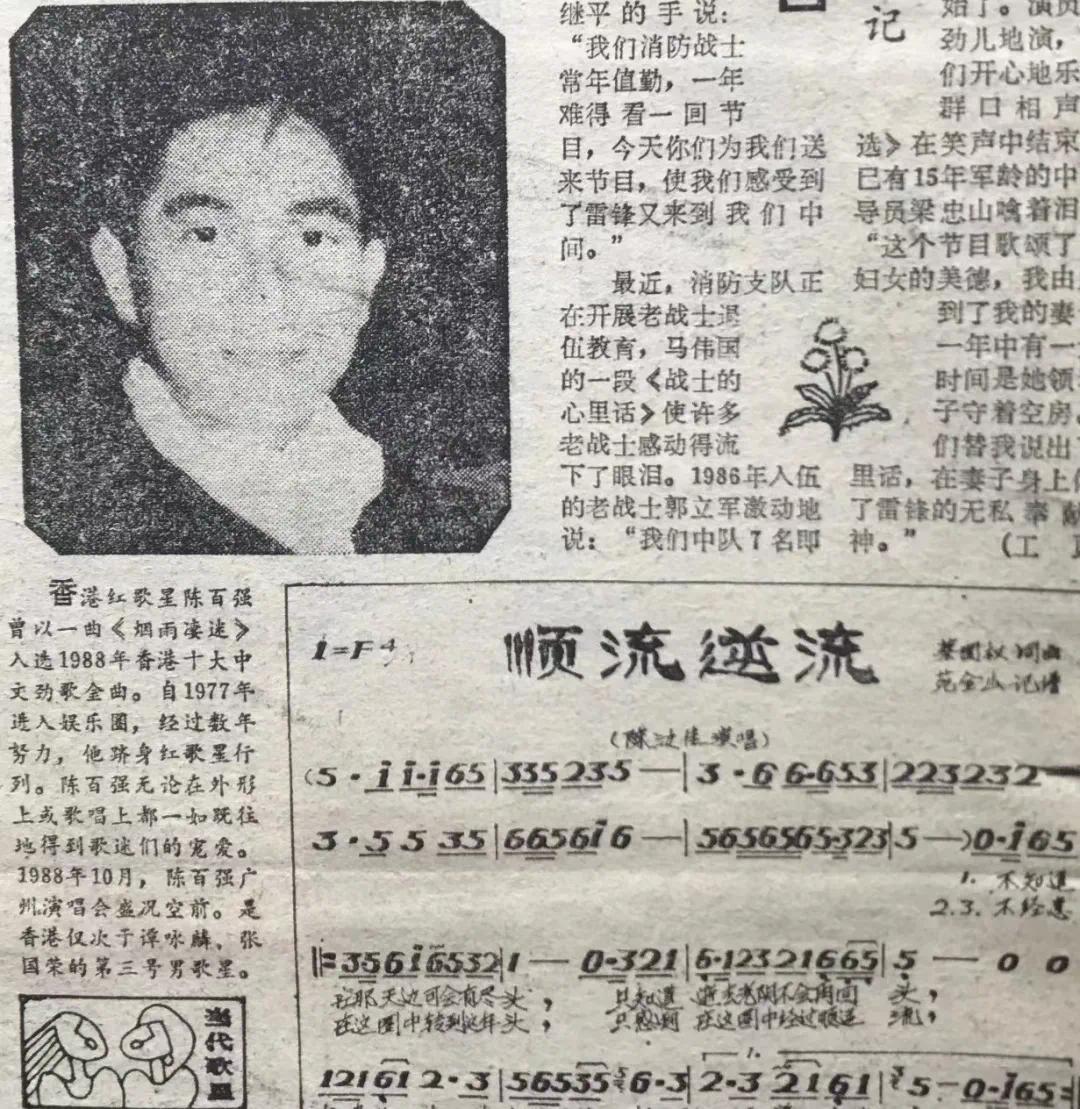 继平的手说:
“我们消防战士
常年值勤，一年
难得看一回节
目，今天你们为我们送
来节目，使我们感受到
了雷锋又来到我们中
间。”
最近，消防支队正
在开展老战士退
伍教育，马伟国
的一段《战士的
心里话》使许多
老战士感动得流
下了眼泪。1986年入伍
的老战士郭立军激动地
说：“我们中队7名即
记
始了。演员
劲儿地演，
们开心地乐
群口相声
选》在笑声中结束
已有15年军龄的中
导员梁忠山噙着泪
“这个节目歌颂了
妇女的美德，我由
到了我的妻
一年中有一
时间是她领
子守着空房
们替我说出
里话，在妻子身上
了雷锋的无私奉献
神。”
(工
香港红歌星陈百强
曾以一曲《烟雨凄迷》
入选1988年香港十大中
文劲歌金曲。自1977年
进入娱乐圈，经过数年
努力，他跻身红歌星行
列。陈百强无论在外形
上或歌唱上都一如既往
地得到歌迷们的宠爱。
1988年10月，陈百强广
州演唱会盛况空前。是
香港仅次于谭咏麟、张
国荣的第三号男歌星。
当代歌星
1=F 4
顺流逆流
蔡国权 词曲
记谱
演唱)
(5·i i·i65|335235—|3·66·653|2223232
3·5535|6656i6—|5656565·323|5—)0·i65
1. 不知道
2.3. 不经意
‖:356i6532|1—0·321|6·12321665|5—00
在那天边可会有尽头，只知道逝去光阴不会再回头，
在这圈中转到这年头，只感到在这圈中经过顺逆流，
1216i2·3|56535 6·3|2·3 2161|5—0·i65